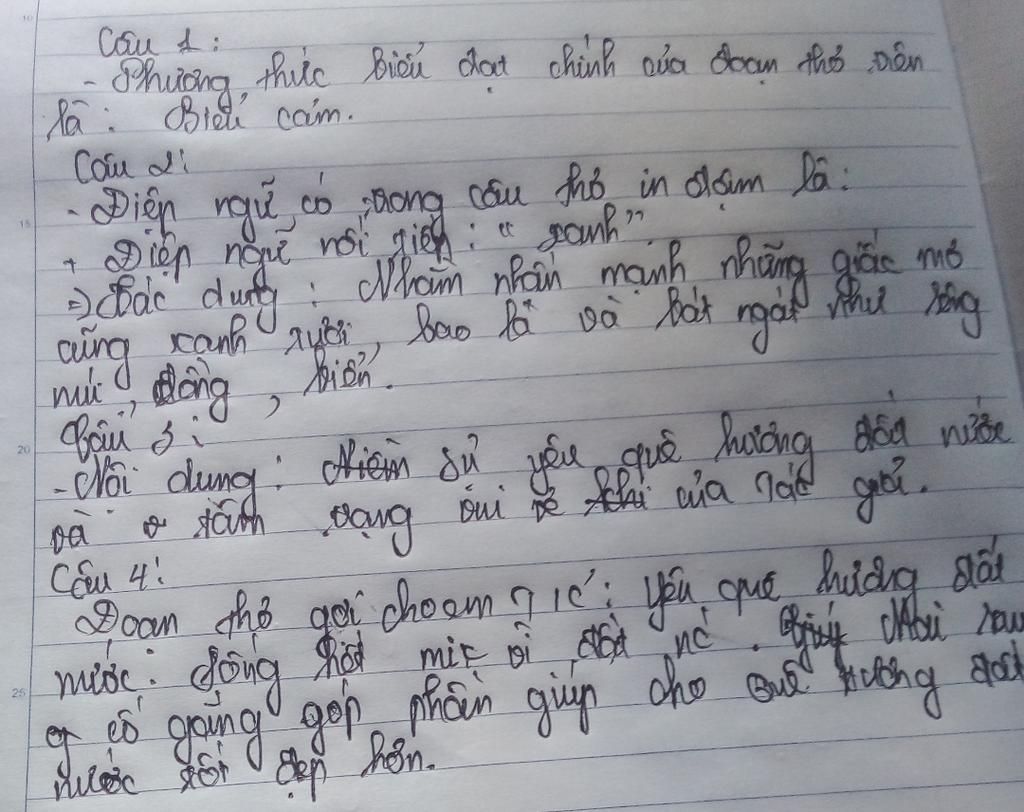 Câu 1:
- Phương thức biểu đạt chính của đoạn thơ trên
là: Biểu cảm.
Câu 2:
- Điệp ngữ có trong câu thơ in đậm là:
+ Điệp ngữ nối tiếp: "xanh"
=> Tác dụng: Nhằm nhấn mạnh những giấc mơ
cũng xanh tươi, bao la và bát ngát như sông
núi, đồng, biển.
Câu 3:
- Nội dung: Niềm sự yêu quê hương đất nước
và tâm trạng vui vẻ của tác giả.
Câu 4:
Đoạn thơ gợi cho em T/C: yêu quê hương đất
nước. Sống hết mình vì đất nc. Mai sau
cố gắng góp phần giúp cho quê hương đất
nước tốt đẹp hơn.